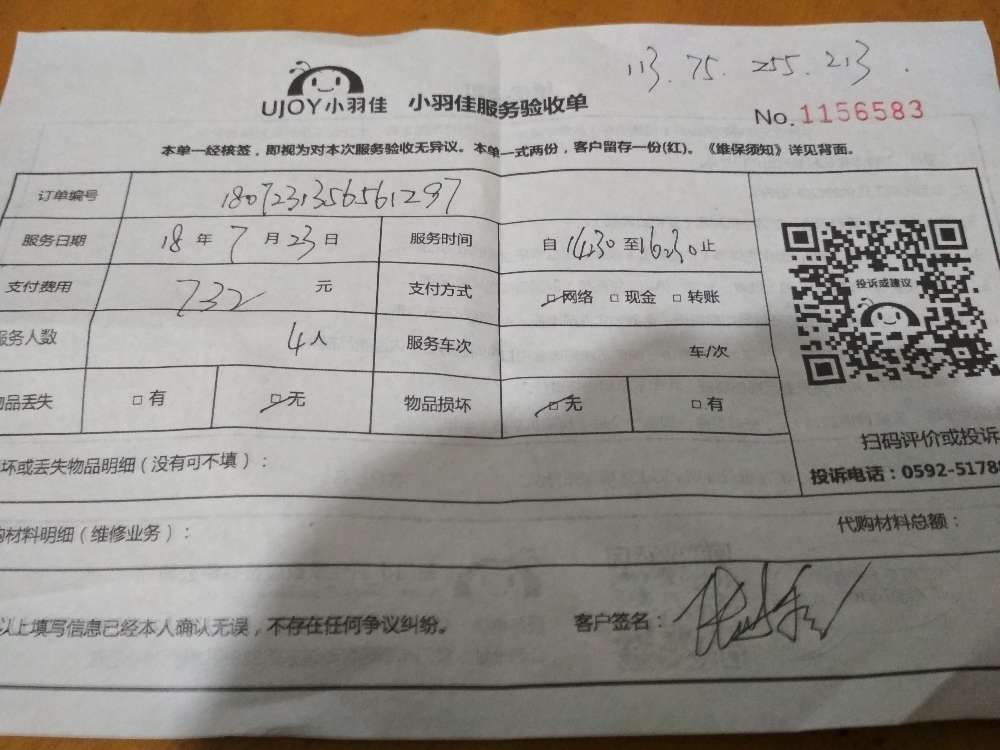 113.75.255.213.
UJOY小羽佳 小羽佳服务验收单
No.1156583
本单一经核签，即视为对本次服务验收无异议。本单一式两份，客户留存一份(红)。《维保须知》详见背面。
订单编号 1807231356561297
服务日期 18 年 7 月 23 日 服务时间 自 14:30 至 16:30 止
支付费用 732 元 支付方式 □网络 □现金 □转账
服务人数 4人 服务车次 车/次
物品丢失 □有 □无 物品损坏 □无 □有
投诉或建议
扫码评价或投诉
投诉电话：0592-5178
坏或丢失物品明细（没有可不填）：
购材料明细（维修业务）：
代购材料总额：
以上填写信息已经本人确认无误，不存在任何争议纠纷。 客户签名：